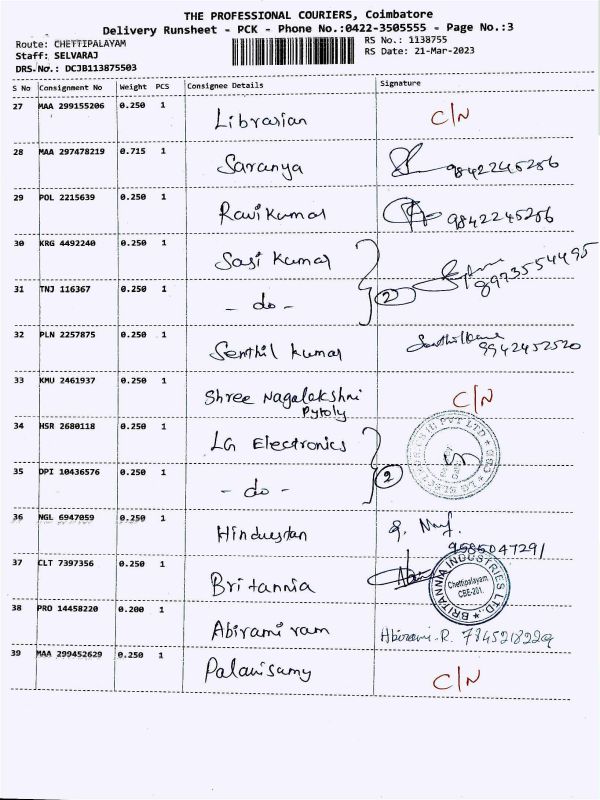 THE PROFESSIONAL COURIERS, Coimbatore
Delivery Runsheet - PCK - Phone No.:0422-3505555 - Page No.:3
Route: CHETTIPALAYAM RS No.: 1138755
Staff: SELVARAJ RS Date: 21-Mar-2023
DRS.No.: DCJB113875503
S No Consignment No Weight PCS Consignee Details Signature
27 MAA 299155206 0.250 1 Librarian C/N
28 MAA 297478219 0.715 1 Saranya 9842245256
29 POL 2215639 0.250 1 Ravikumar 9842245256
30 KRG 4492240 0.250 1 Sasi Kumar 8973554495
31 TNJ 116367 0.250 1 - do - 2
32 PLN 2257875 0.250 1 Senthil kumar 9942452520
33 KMU 2461937 0.250 1 Shree Nagalakshni C/N
34 HSR 2680118 0.250 1 LG Electronics
35 DPI 10436576 0.250 1 - do - 2
36 NGL 6947059 0.250 1 Hindusthan 9585047291
37 CLT 7397356 0.250 1 Britannia
BRITANNIA INDUSTRIES LTD.,
Chettipalayam,
CBE-201.
38 PRO 14458220 0.200 1 Abirami ram Abirami.R. 7845218229
39 MAA 299452629 0.250 1 Palanisamy C/N